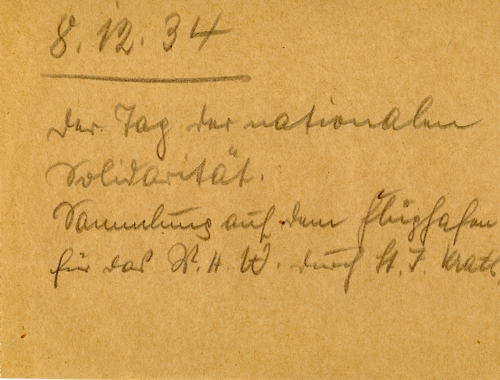 8.12.34
Der Tag der nationalen
Solidarität.
Sammlung auf dem Flughafen
für das W.H.W. durch St. F.